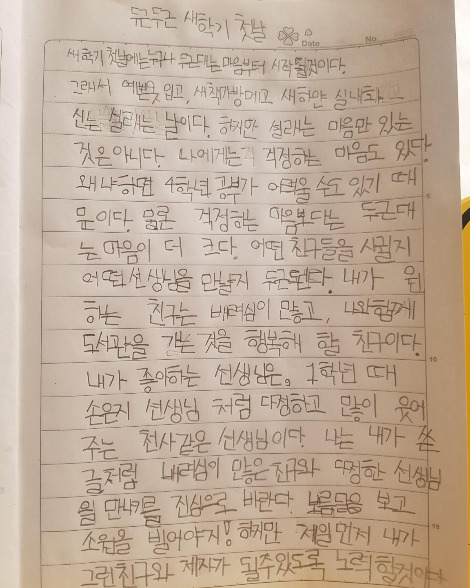 두근두근 새학기 첫날
Date
No.
새학기 첫날에는 누구나 두근대는 마음부터 시작 될것이다.
그래서 예쁜옷 입고, 새책가방메고 새하얀 실내화
신는 설레는 날이다. 하지만 설레는 마음만 있는
것은 아니다. 나에게는 걱정하는 마음도 있다.
왜냐하면 4학년 공부가 어려울 수도 있기 때
문이다. 물론 걱정하는 마음보다는 두근대
는 마음이 더 크다. 어떤 친구들을 사귈지
어떤 선생님을 만날지 두근된다. 내가 원
하는 친구는 배려심이 많고, 나와함께
도서관을 가는 것을 행복해 할 친구이다.
10
내가 좋아하는 선생님은, 1학년 때
손은지 선생님 처럼 다정하고 많이 웃어
주는 천사같은 선생님이다. 나는 내가 쓴
글처럼 배려심이 많은 친구와 다정한 선생님
을 만나기를 진심으로 바란다. 보름달을 보고
소원을 빌어야지! 하지만 제일 먼저 내가
그런친구와 제자가 될수있도록 노력할것이다